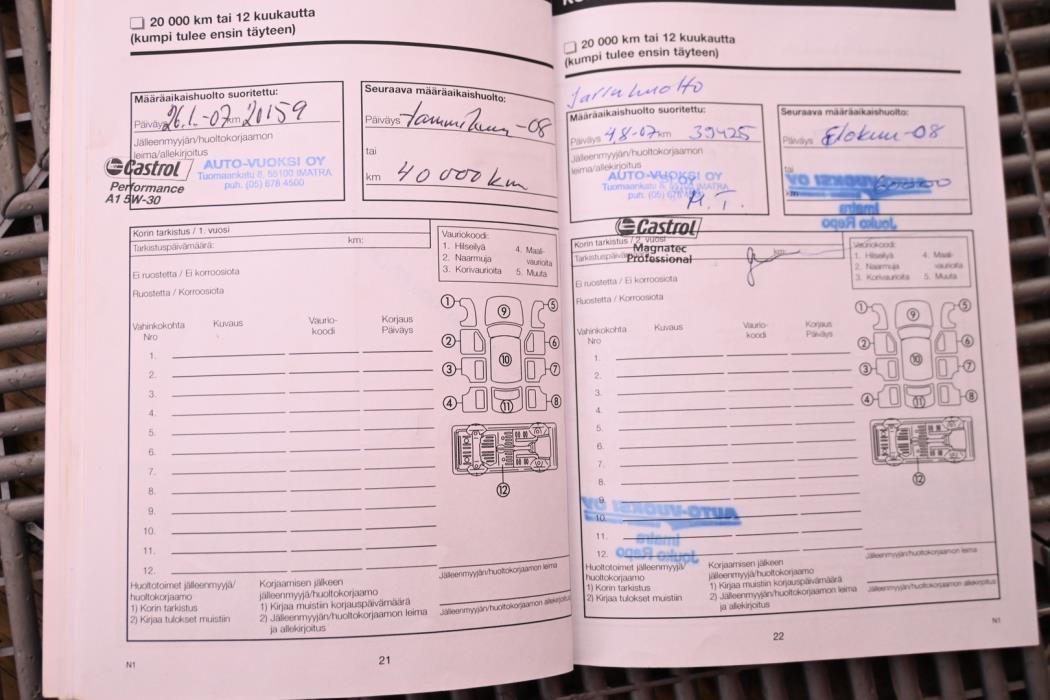 20 000 km tai 12 kuukautta
(kumpi tulee ensin täyteen)
Määräaikaishuolto suoritettu:
Päiväys 26.1.-07 km 20159
Jälleenmyyjän/huoltokorjaamon
leima/allekirjoitus
AUTO-VUOKSI OY
Tuomaankatu 8, 55100 IMATRA
puh. (05) 678 4500
Castrol
Performance
A1 5W-30
Seuraava määräaikaishuolto:
Päiväys Tammikuu -08
tai
km 40 000 km
Korin tarkistus / 1. vuosi
Tarkistuspäivämäärä: km:
Ei ruostetta / Ei korroosiota
Ruostetta / Korroosiota
Vauriokoodi:
1. Hilseilyä
2. Naarmuja
3. Korivaurioita
4. Maali-
vaurioita
5. Muuta
Vahinkokohta
Nro
Kuvaus
Vaurio-
koodi
Korjaus
Päiväys
1.
2.
3.
4.
5.
6.
7.
8.
9.
10.
11.
12.
1
2
3
4
5
6
7
8
9
10
11
12
Huoltotoimet jälleenmyyjä/
huoltokorjaamo
1) Korin tarkistus
2) Kirjaa tulokset muistiin
Korjaamisen jälkeen
1) Kirjaa muistiin korjauspäivämäärä
2) Jälleenmyyjän/huoltokorjaamon leima
ja allekirjoitus
Jälleenmyyjän/huoltokorjaamon leima
Jälleenmyyjän/huoltokorjaamon allekirjoitus
N1
21
20 000 km tai 12 kuukautta
(kumpi tulee ensin täyteen)
Jarruhuolto
Määräaikaishuolto suoritettu:
Päiväys 4.8-07 km 39425
Jälleenmyyjän/huoltokorjaamon
leima/allekirjoitus
AUTO-VUOKSI OY
Tuomaankatu 8, 55100 IMATRA
puh. (05) 678
M.T.
Seuraava määräaikaishuolto:
Päiväys Elokuu -08
tai
km 60000
AUTO-VUOKSI OY
Imatra
Jouko Repo
Castrol
Magnatec
Professional
Korin tarkistus / 2. vuosi
Tarkistuspäivämäärä: km:
Ei ruostetta / Ei korroosiota
Ruostetta / Korroosiota
Vauriokoodi:
1. Hilseilyä
2. Naarmuja
3. Korivaurioita
4. Maali-
vaurioita
5. Muuta
Vahinkokohta
Nro
Kuvaus
Vaurio-
koodi
Korjaus
Päiväys
1.
2.
3.
4.
5.
6.
7.
8.
9.
10.
11.
12.
1
2
3
4
5
6
7
8
9
10
11
12
AUTO-VUOKSI OY
Imatra
Jouko Repo
Huoltotoimet jälleenmyyjä/
huoltokorjaamo
1) Korin tarkistus
2) Kirjaa tulokset muistiin
Korjaamisen jälkeen
jälleenmyyjä/huoltokorjaamo
1) Kirjaa muistiin korjauspäivämäärä
2) Jälleenmyyjän/huoltokorjaamon leima
ja allekirjoitus
Jälleenmyyjän/huoltokorjaamon leima
Jälleenmyyjän/huoltokorjaamon allekirjoitus
22
N1